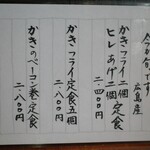 今が旬です
広島産
かきフライ二個
ヒレあげ二個定食
二、四〇〇円
かきフライ定食五個
二、八〇〇円
かきのベーコン巻定食
二、八〇〇円